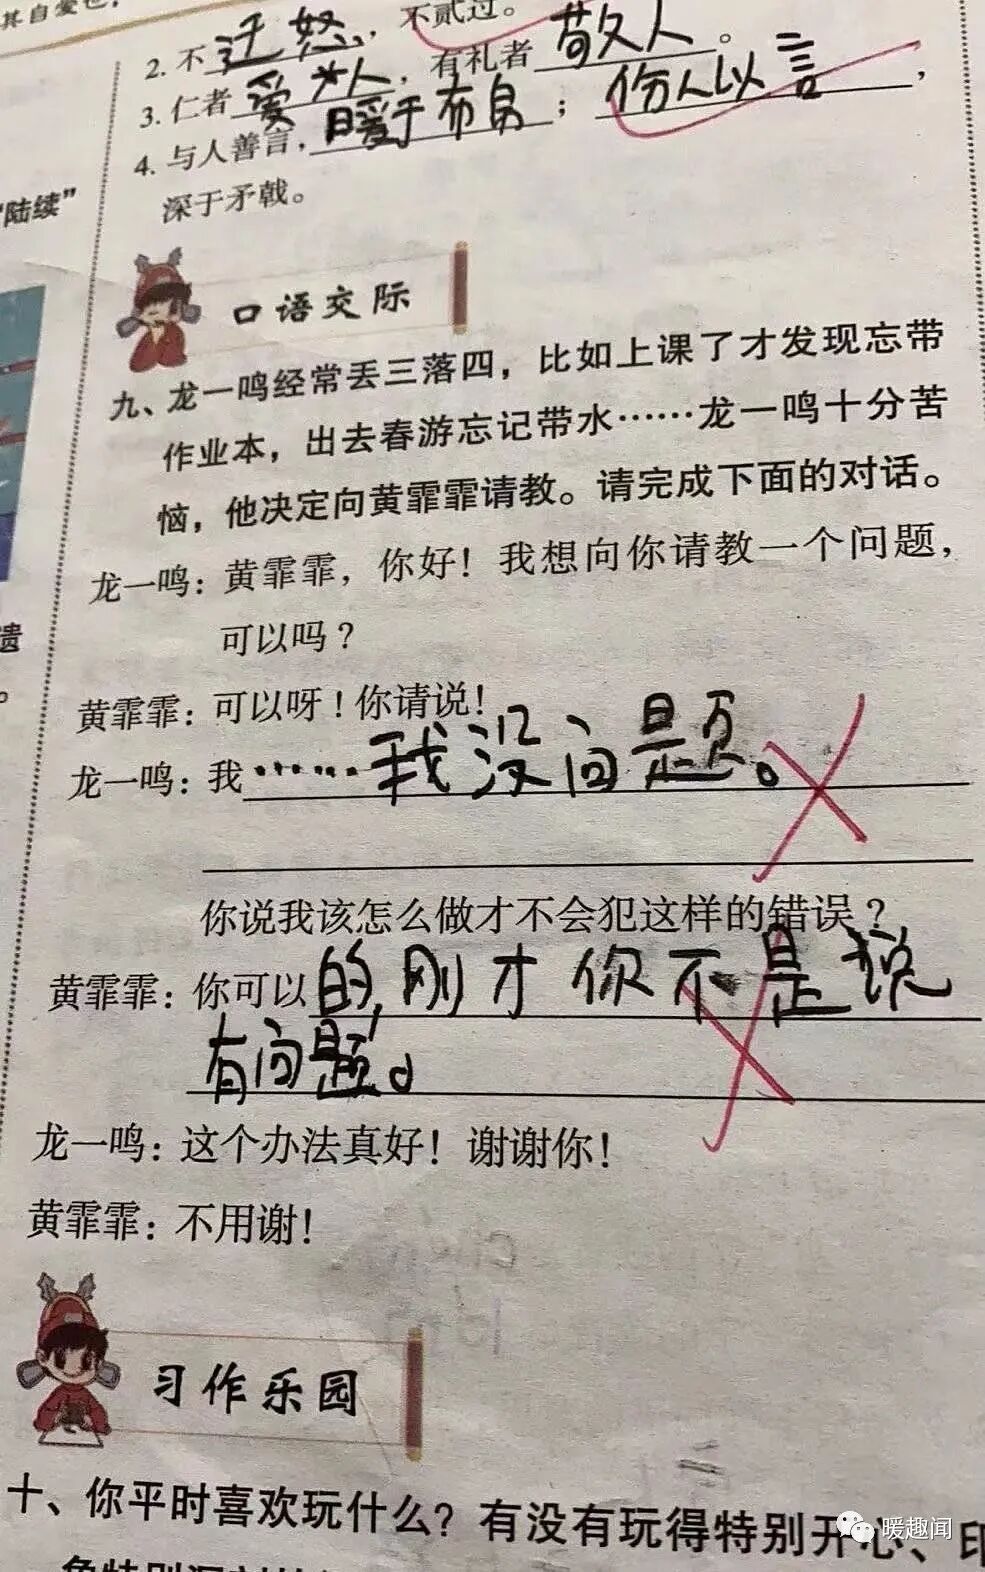 其自爱也，
2. 不迁怒，不贰过。
3. 仁者爱人，有礼者敬人。
4. 与人善言，暖于布帛；伤人以言，
深于矛戟。
"陆续"
口语交际
九、龙一鸣经常丢三落四，比如上课了才发现忘带
作业本，出去春游忘记带水……龙一鸣十分苦
恼，他决定向黄霏霏请教。请完成下面的对话。
龙一鸣：黄霏霏，你好！我想向你请教一个问题，
可以吗？
遗
黄霏霏：可以呀！你请说！
龙一鸣：我……我没问题。
你说我该怎么做才不会犯这样的错误？
黄霏霏：你可以的，刚才你不是说
有问题。
龙一鸣：这个办法真好！谢谢你！
黄霏霏：不用谢！
习作乐园
十、你平时喜欢玩什么？有没有玩得特别开心、印
暖趣闻